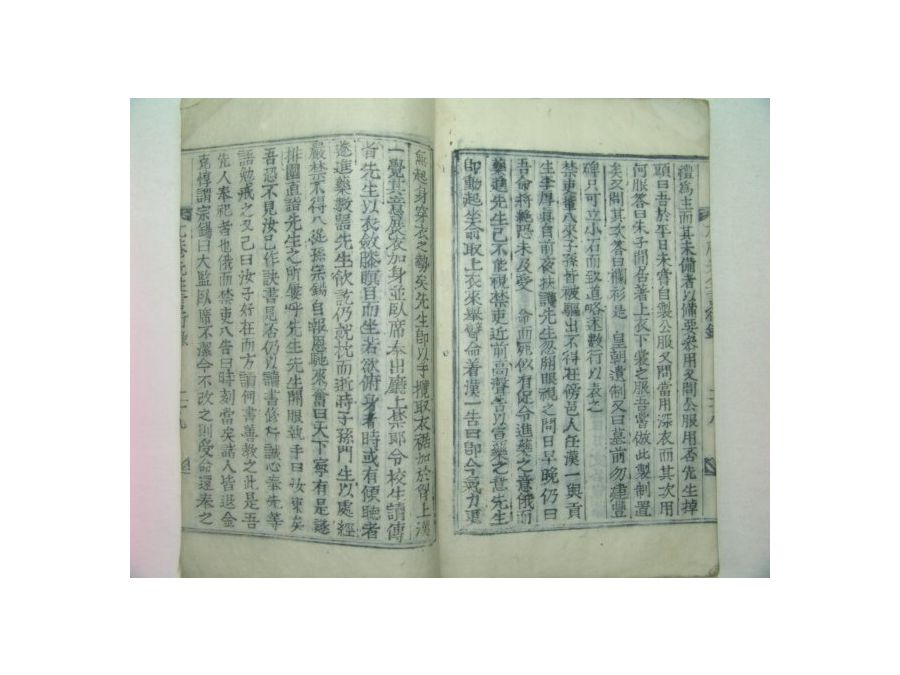 禮爲主而其未備者以備要參用又問公服用否先生掉
頭曰吾於平日未嘗自製公服又問當用深衣而其次用
何服答曰朱子閒居著上衣下裳之服吾嘗倣此製制置
矣又問其次答曰襴衫是 皇朝遺制又曰墓前勿建豐
碑只可立小石而致道略述數行以表之
禁吏輩入來子孫皆被驅出不得在傍邑人任漢一與貢
生李厚眞自前夜扶護先生忽開眼視之問日早晩仍曰
吾命將絶恐未及受 命而死似有促令進藥之意俄而
藥進先生已不能視禁吏近前高聲告以宣藥之意先生
卽動起坐命取上衣來擧臂命着漢一告曰卽今氣力更
無起身穿衣之勢矣先生卽以手攬取衣裾加於臂上漢
一覺其意展衣加身並臥席奉出廳上禁郞令校生請傳
旨先生以衣斂膝瞑目而坐若欲俯身者時或有傾聽者
遂進藥數器先生飮訖仍就枕而逝時子孫門生以處經
嚴禁不得入從孫宗錫自報恩馳來奮曰天下寧有是遂
排圍直詣先生之所屢呼先生先生開眼執手曰汝來矣
吾恐不見汝已作訣書尾否仍以讀書修行誠心奉先等
語勉戒之又曰汝子好在而方讀何書善敎之此是吾
先人奉祀者也俄而禁吏入告曰時刻當矣諸人皆退金
萬傳謂宗錫曰大監臥席不潔今不改之則受命還來之